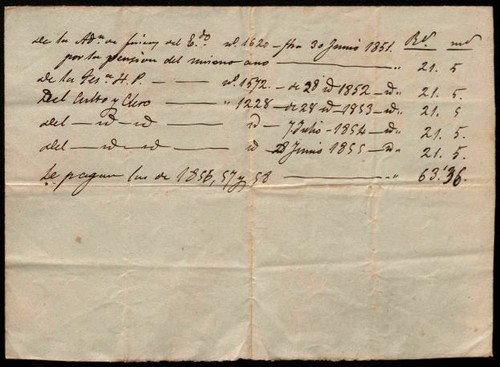 De la Adon de fincas del Edo nº. 1620 – fha 30 Junio 1851. Rs. ms
por la pension del mismo año — " 21. 5
De la Tesa. H. P. — nº. 1572. — de 28 id 1852 — id. 21. 5.
Del Culto y Clero — " 1228 — de 28 id — 1853 — id. 21. 5
del — id — id — id — 7 Julio — 1854 — id. 21. 5.
del — id — id — id 28 Junio 1855 — id. 21. 5.
Se pagan las de 1856, 57 y 58 — " 63.'36.